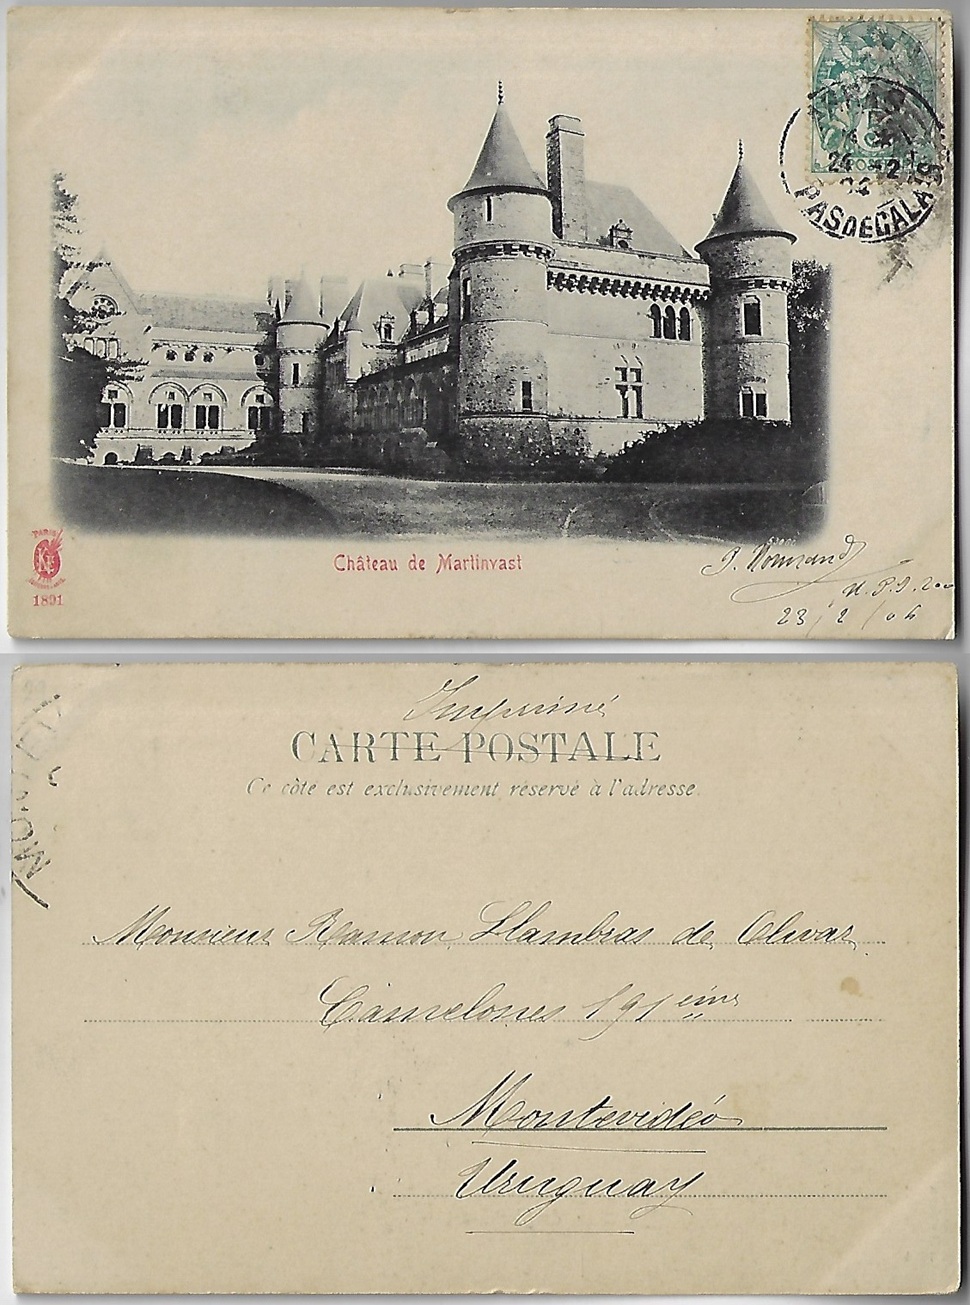 5
POSTES
24 -2
04
PAS DE CALAIS
T
PARIS
Château de Martinvast
1891
J. Normand
23/2/04
Imprimé
CARTE POSTALE
Ce côté est exclusivement réservé à l'adresse.
MONTEV
Monsieur Ramon Llambias de Olivar
Camelones 191 ème
Montevidéo
Uruguay